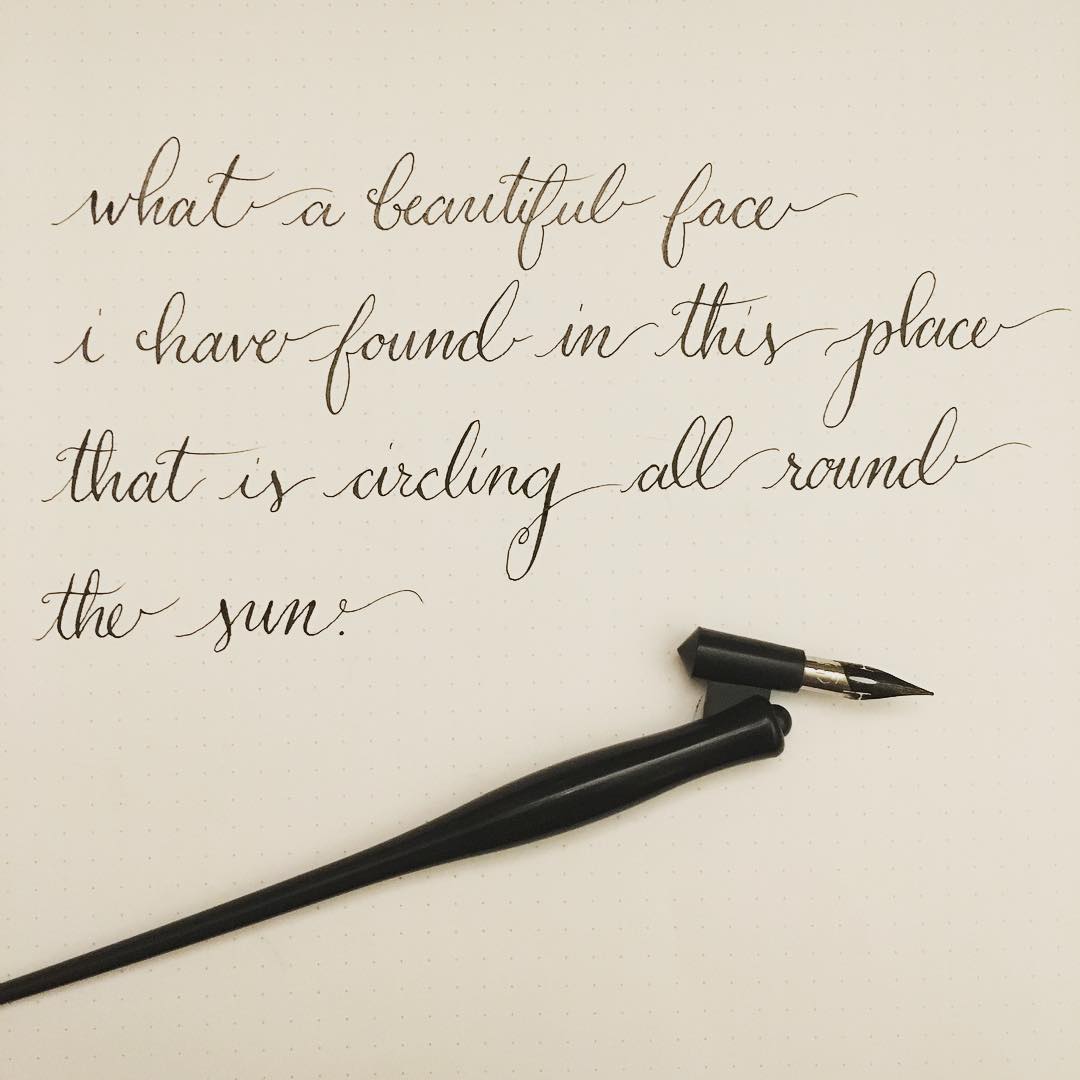 what a beautiful face
i have found in this place
that is circling all round
the sun.